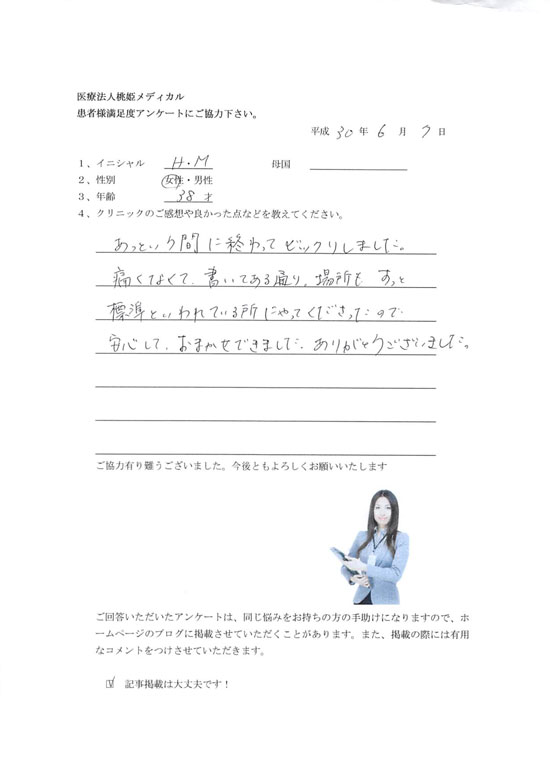 医療法人桃姫メディカル
患者様満足度アンケートにご協力下さい。
平成 30 年 6 月 7 日
1、イニシャル H・M 母国
2、性別 女性・男性
3、年齢 38 才
4、クリニックのご感想や良かった点などを教えてください。
あっという間に終わってビックリしました。
痛くなくて、書いてある通り、場所も ずっと
標準といわれている所にやってくださったので
安心して、おまかせできました。ありがとうございました。
ご協力有り難うございました。今後ともよろしくお願いいたします
ご回答いただいたアンケートは、同じ悩みをお持ちの方の手助けになりますので、ホ
ームページのブログに掲載させていただくことがあります。また、掲載の際には有用
なコメントをつけさせていただきます。
☑ 記事掲載は大丈夫です！